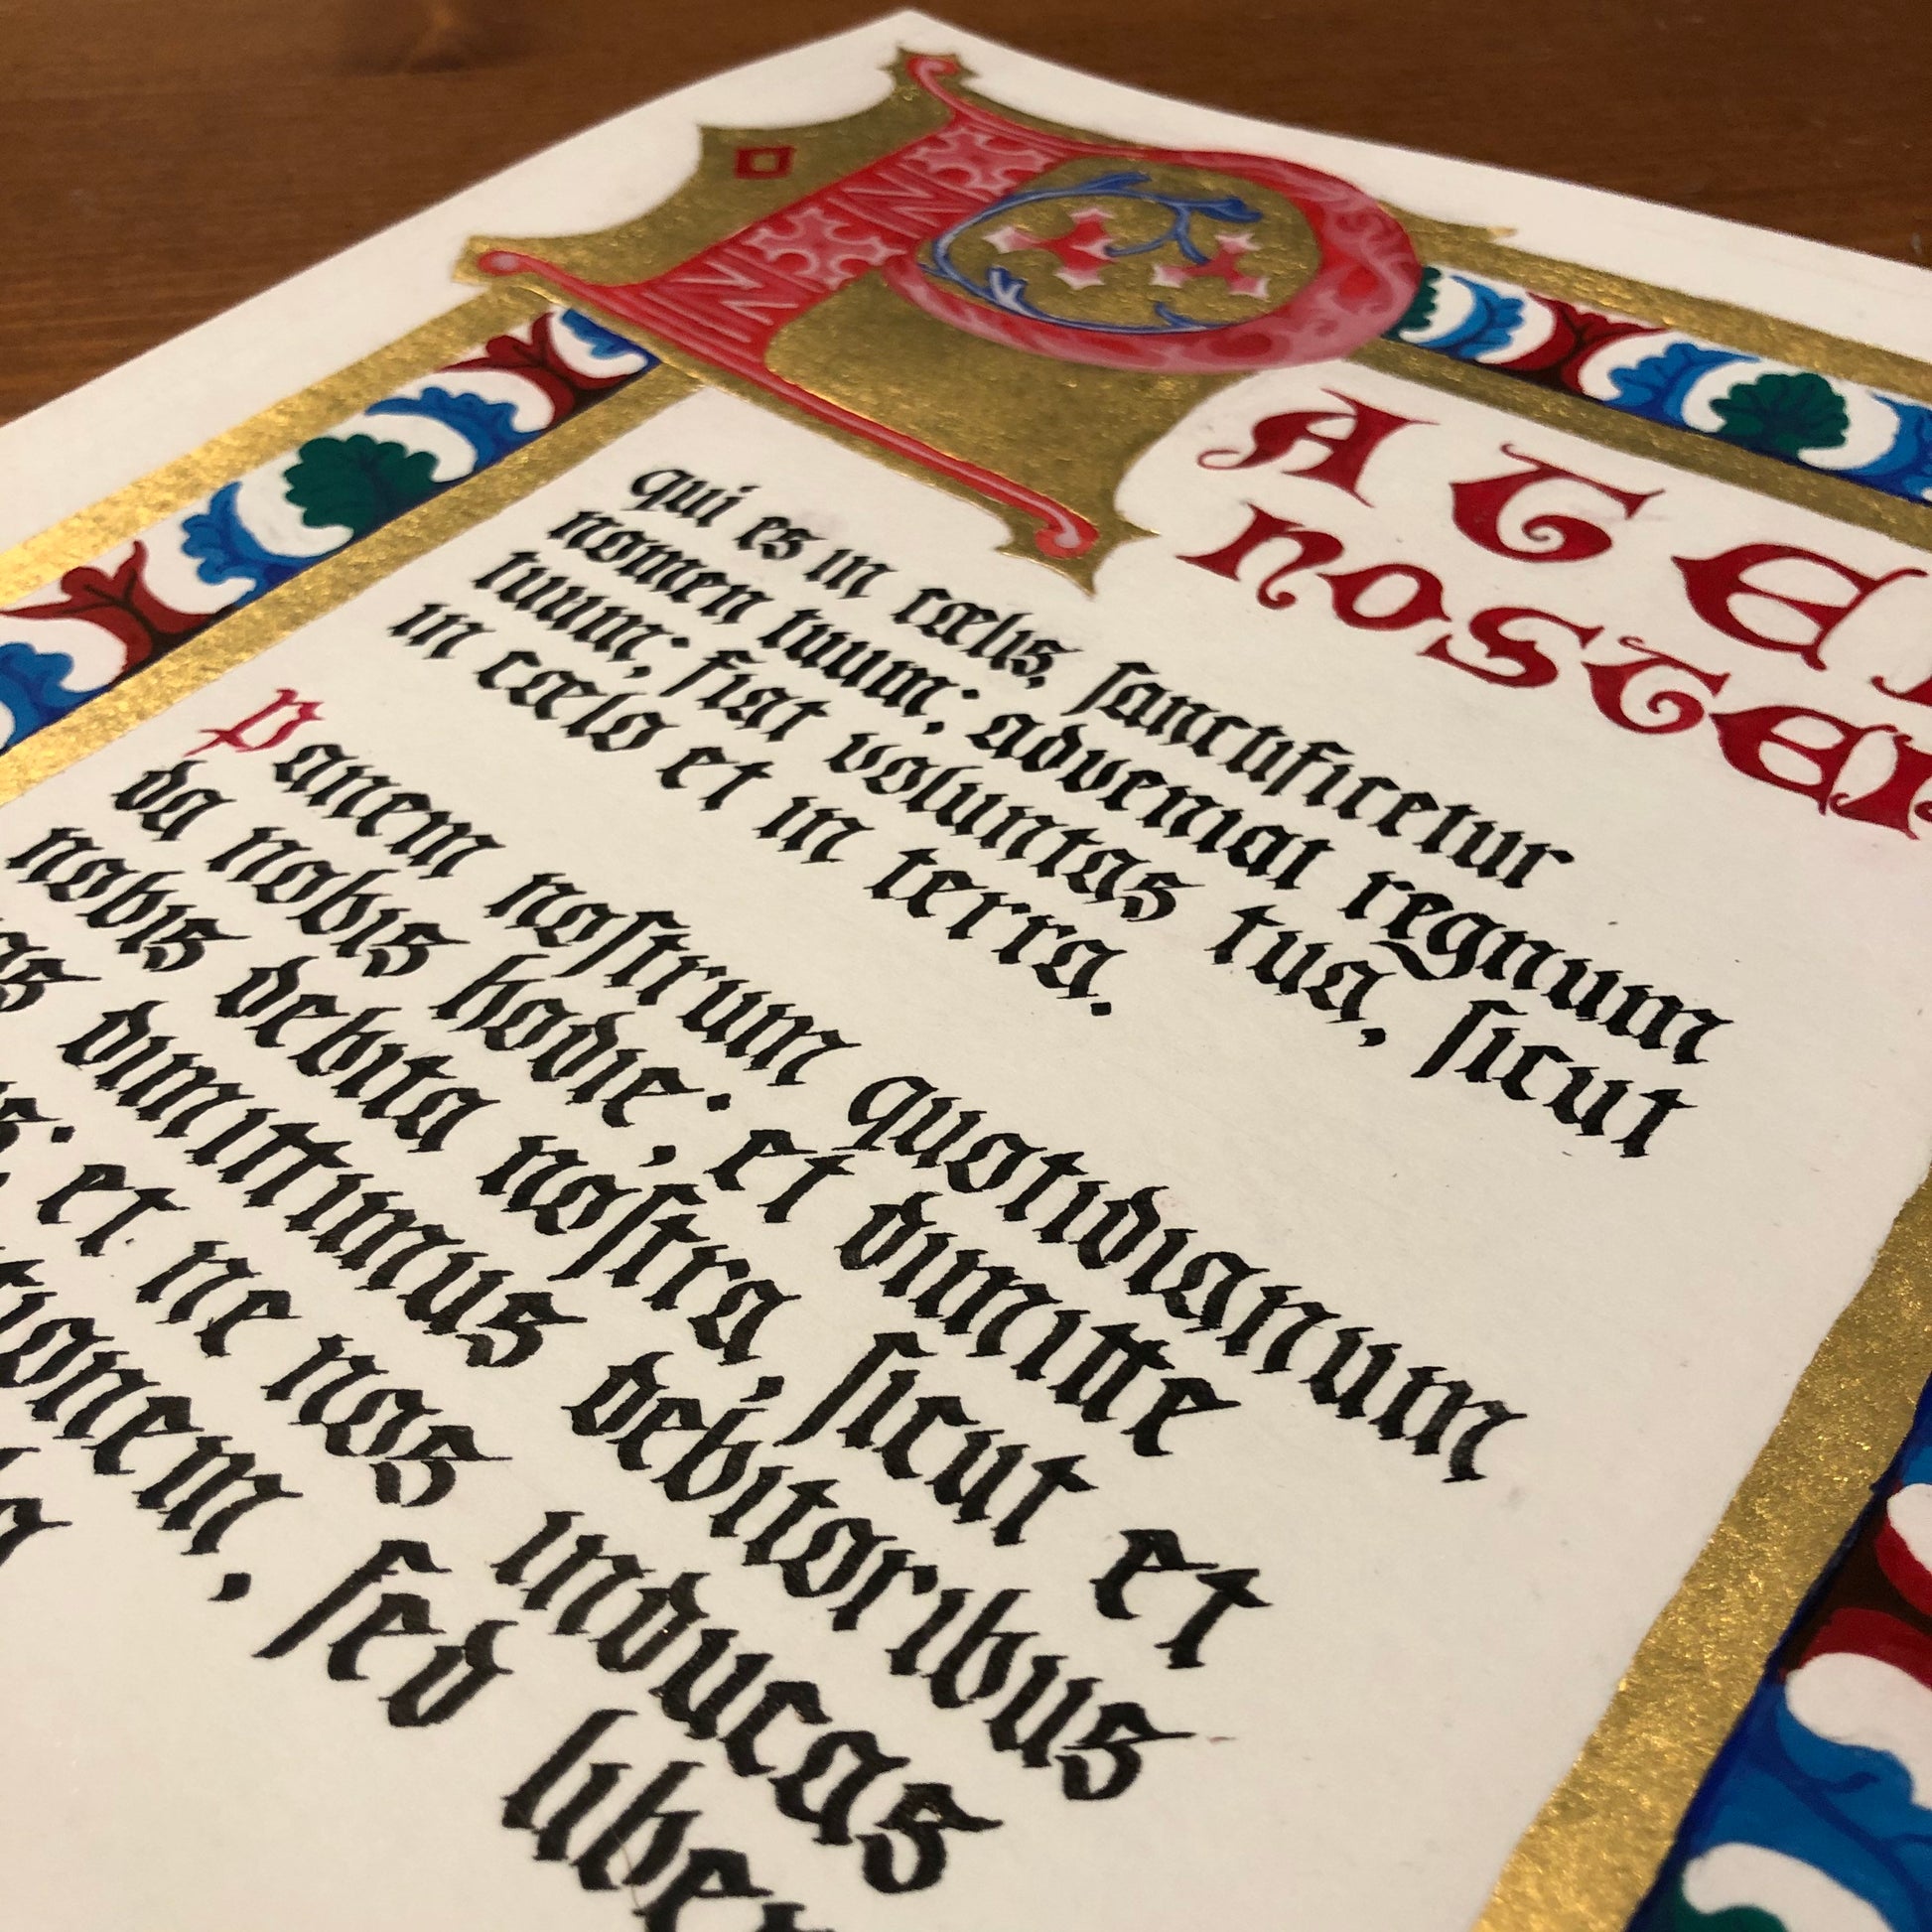 PATER
NOSTER
qui es in cœlis, ſanctificetur
nomen tuum; adveniat regnum
tuum; fiat voluntas tua, ſicut
in cœlo et in terra.
Panem noſtrum quotidianum
da nobis hodie; et dimitte
nobis debita noſtra, ſicut et
dimittimus debitoribus
et ne nos inducas
ſed